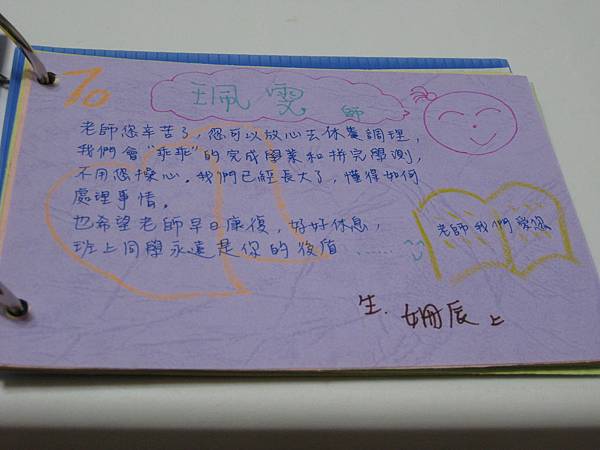 To
珮雯 師
老師您辛苦了，您可以放心去休養調理，
我們會"乖乖"的完成學業和拼完學測，
不用您操心。我們已經長大了，懂得如何
處理事情。
也希望老師早日康復，好好休息，
班上同學永遠是你的後盾……
老師我們愛您
生．姍辰 上